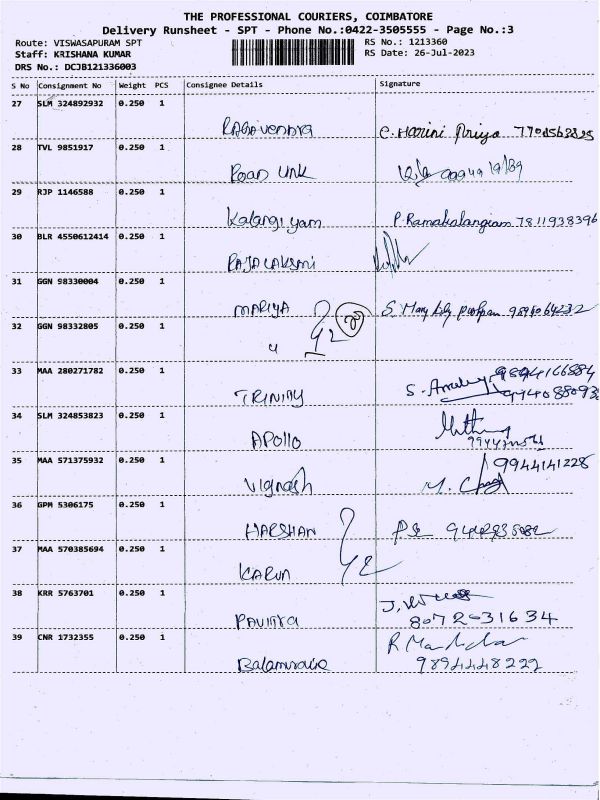 THE PROFESSIONAL COURIERS, COIMBATORE
Delivery Runsheet - SPT - Phone No.:0422-3505555 - Page No.:3
Route: VISWASAPURAM SPT RS No.: 1213360
Staff: KRISHANA KUMAR RS Date: 26-Jul-2023
DRS No.: DCJB121336003
S No Consignment No Weight PCS Consignee Details Signature
27 SLM 324892932 0.250 1
RAGAVENDRA C. Harini Priya
28 TVL 9851917 0.250 1
Roan Unk
29 RJP 1146588 0.250 1
Kalangiyam P. Ramakalangiam 7811938396
30 BLR 4550612414 0.250 1
RAJALAKSMI
31 GGN 98330004 0.250 1
MARIYA S. Mary
32 GGN 98332805 0.250 1
33 MAA 280271782 0.250 1
TRINITY S. 9894166884
34 SLM 324853823 0.250 1
APOLLO
35 MAA 571375932 0.250 1
Vignash 9944141228
36 GPM 5306175 0.250 1
HARSHAN
37 MAA 570385694 0.250 1
KARUN
38 KRR 5763701 0.250 1
PAVITRA 8072031634
39 CNR 1732355 0.250 1
9894448222